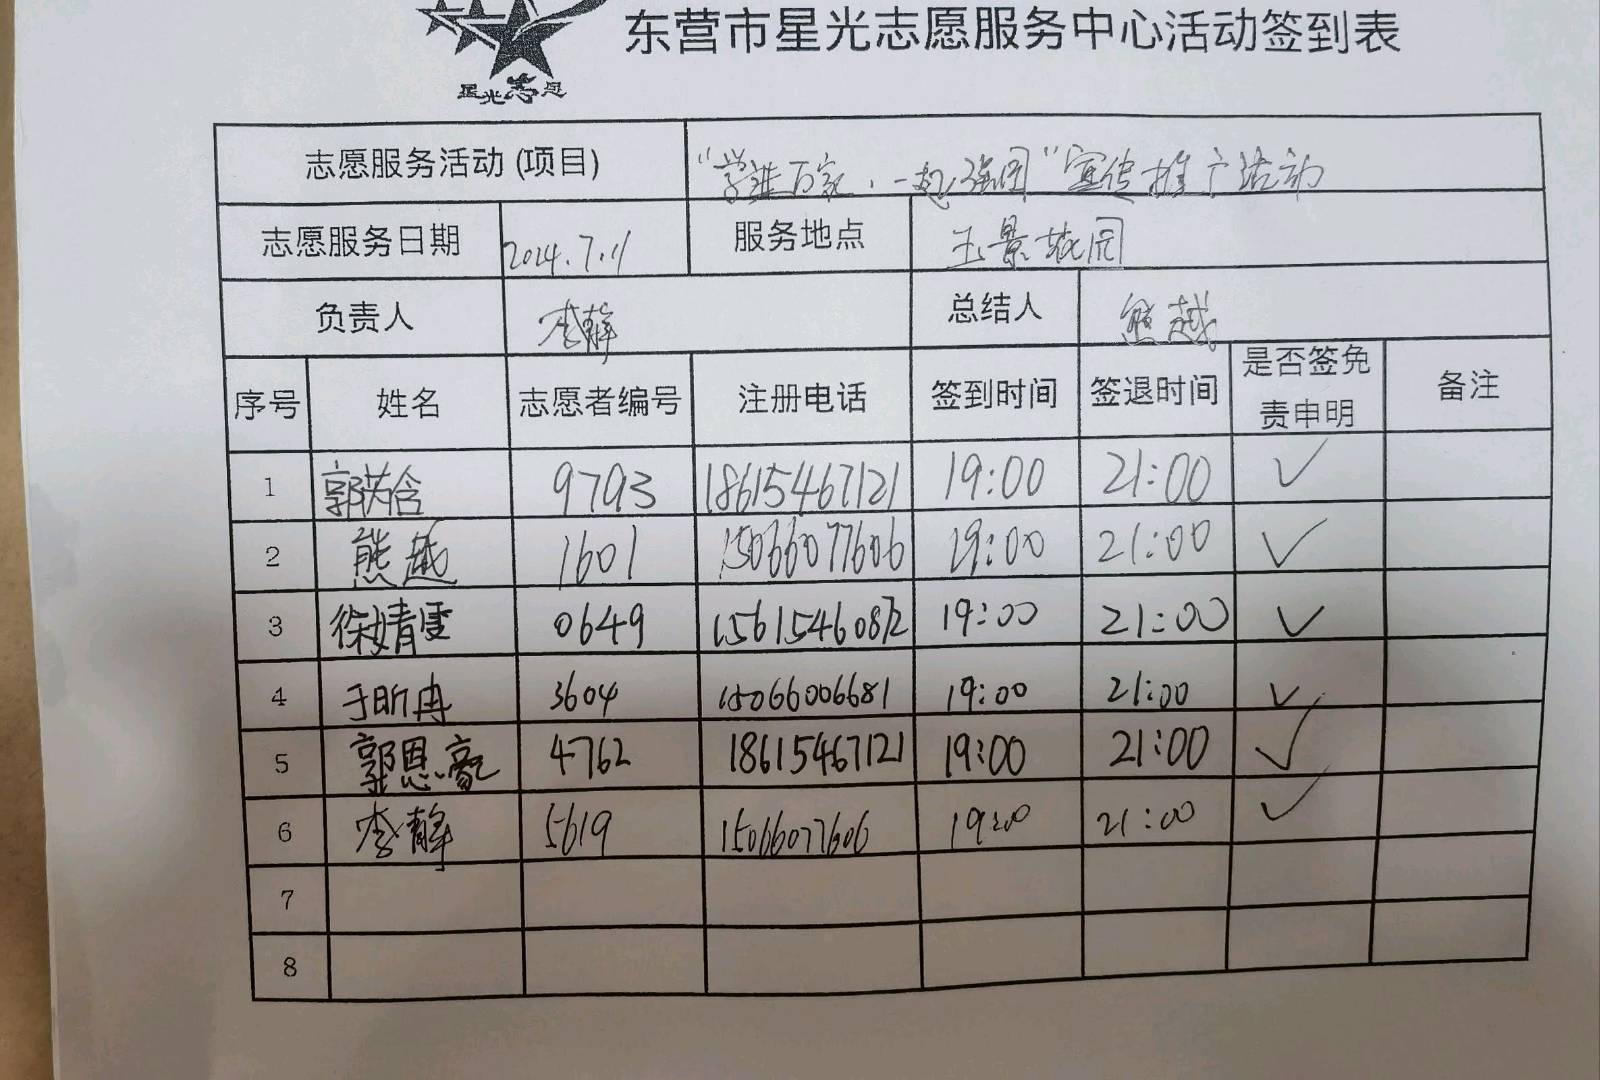 东营市星光志愿服务中心活动签到表
星光志愿
志愿服务活动(项目) “学进万家,一起强国”宣传推广活动
志愿服务日期 2024.7.11 服务地点 玉景花园
负责人 李静 总结人 熊越
序号 姓名 志愿者编号 注册电话 签到时间 签退时间 是否签免责申明 备注
1 郭芮含 9793 18615467121 19:00 21:00 ✓
2 熊越 1601 15066077606 19:00 21:00 ✓
3 徐婧雯 0649 15615460872 19:00 21:00 ✓
4 于昕冉 3604 15066006681 19:00 21:00 ✓
5 郭恩豪 4762 18615467121 19:00 21:00 ✓
6 李静 5619 15066077606 19:00 21:00 ✓
7
8